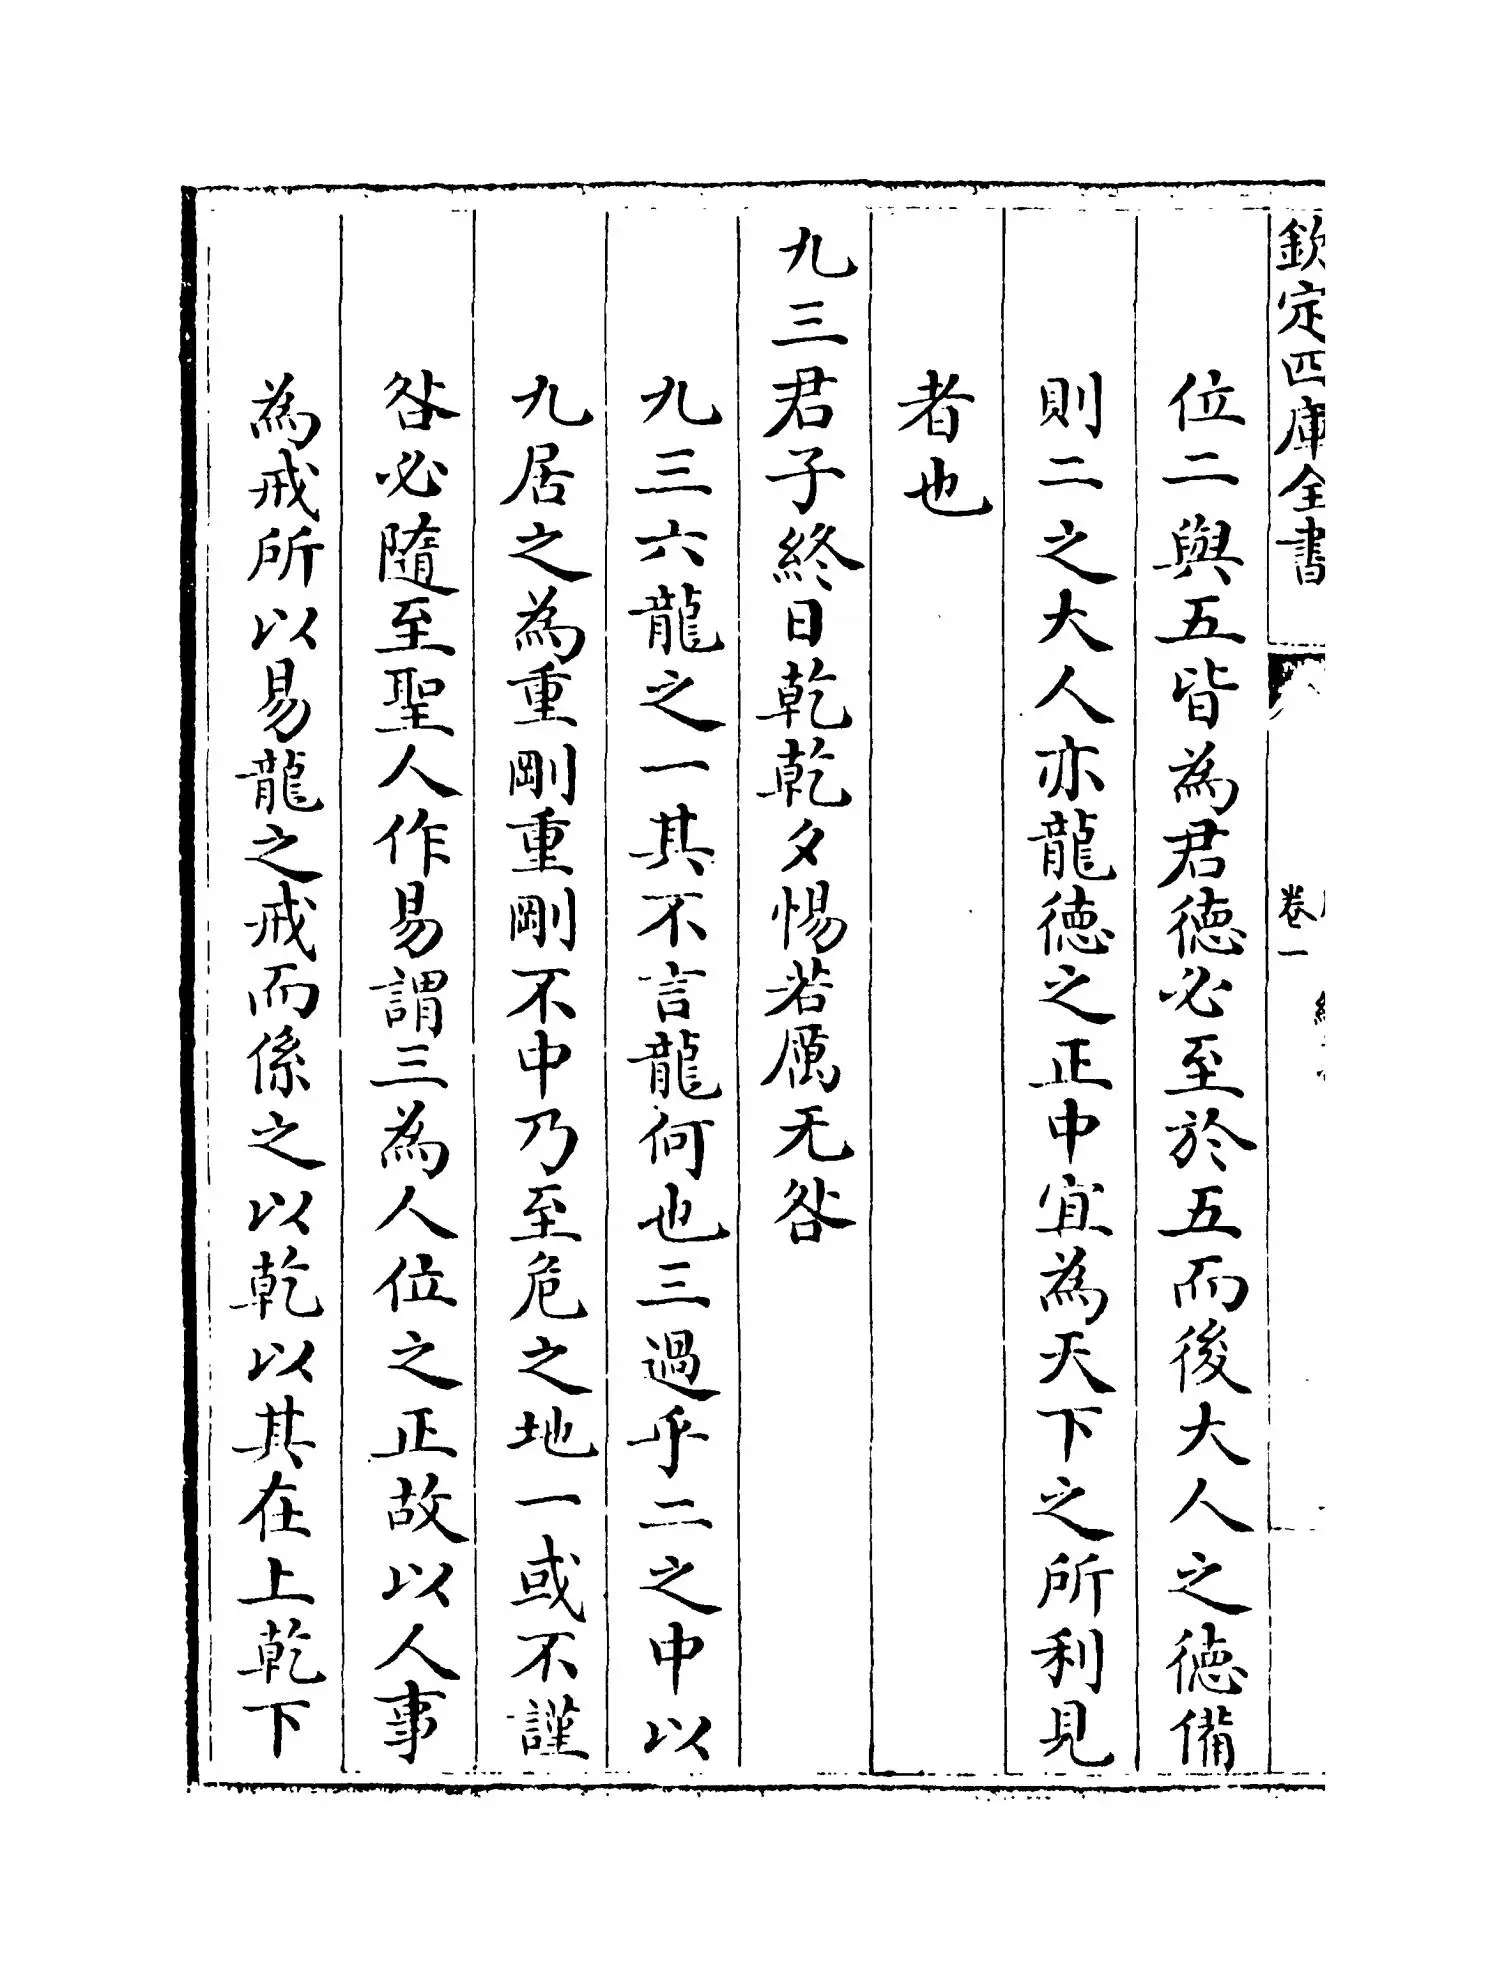 欽定四庫全書
卷一
位二與五皆為君德必至於五而後大人之德備
則二之大人亦龍德之正中宜為天下之所利見
者也
九三君子終日乾乾夕惕若厲无咎
九三六龍之一其不言龍何也三過乎二之中以
九居之為重剛重剛不中乃至危之地一或不謹
咎必隨至聖人作易謂三為人位之正故以人事
為戒所以易龍之戒而係之以乾以其在上乾下